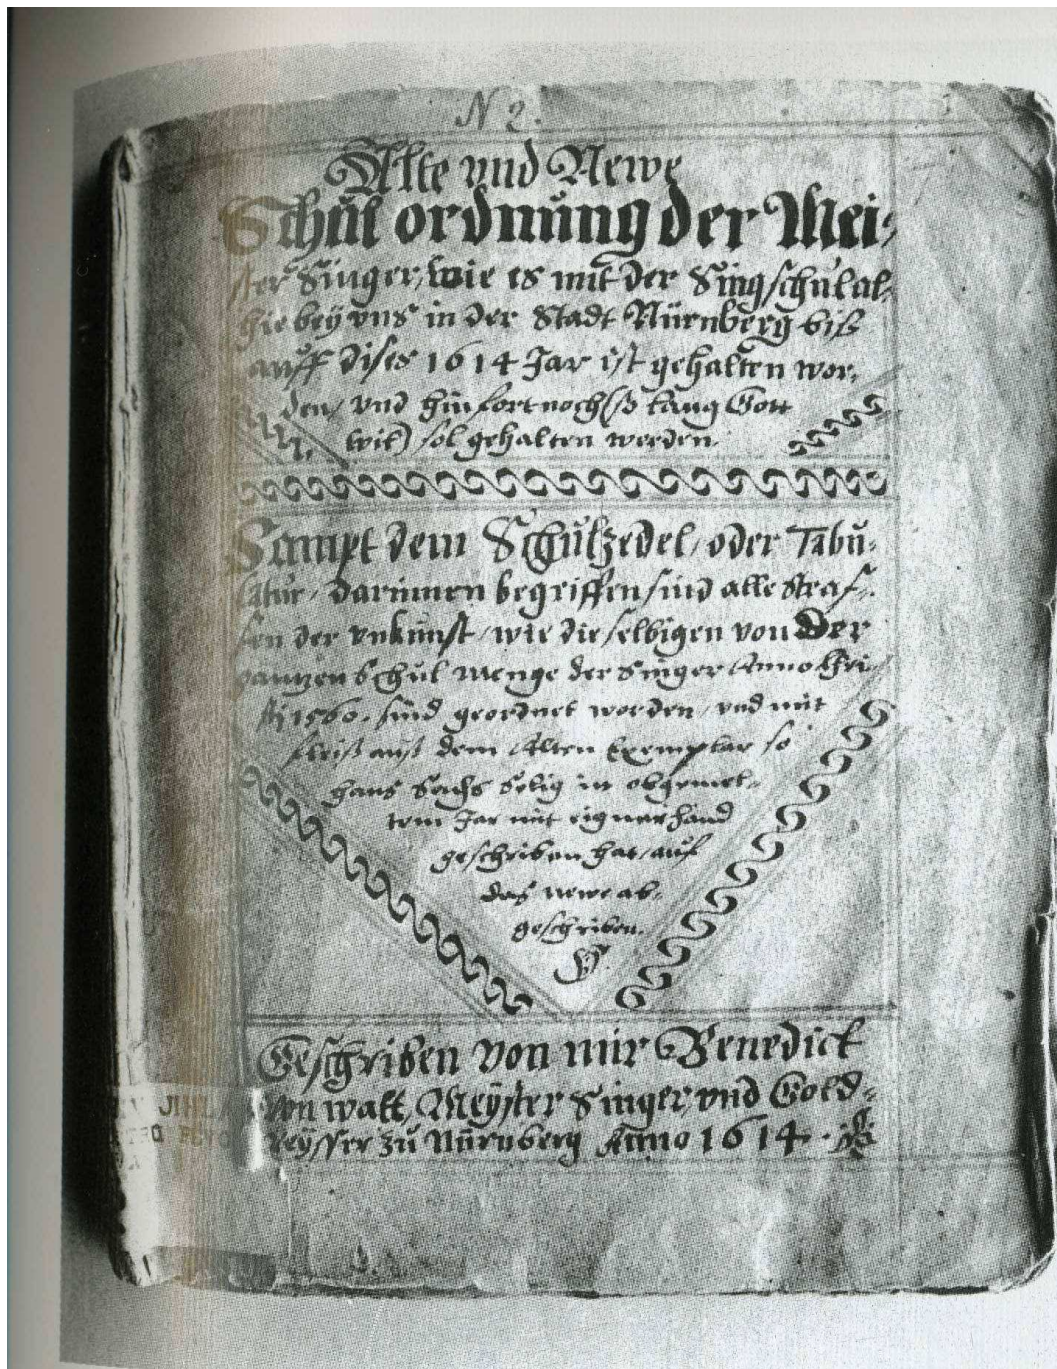 N 2.
Alte vnd Newe
Schul ordnung der Mei-
ster Singer, wie es mit der Singschul al-
hie beÿ vns in der Stadt Nürnberg biß
auff dises 1614 Jar ist gehalten wor,
den, vnd hinfort noch (so lang Gott
wil) sol gehalten werden.
Sampt dem Schulzedel, oder Tabu-
latur, darinnen begriffen sind alle straf-
fen der vnkunst, wie die selbigen von Der
gantzen Schul menge der Singer Anno Chri-
stj 1560. sind geordnet worden, vnd mit
fleiß auß dem Alten Exemplar so
hans Sachs Selig in obgemel-
tem Jar mit eigner hand
geschriben hat, auf
das newe ab-
geschriben.
Geschriben von mir Benedict
von watt, Meÿster Singer, vnd Gold-
reÿsser zu Nürnberg Anno 1614.
JIHLA